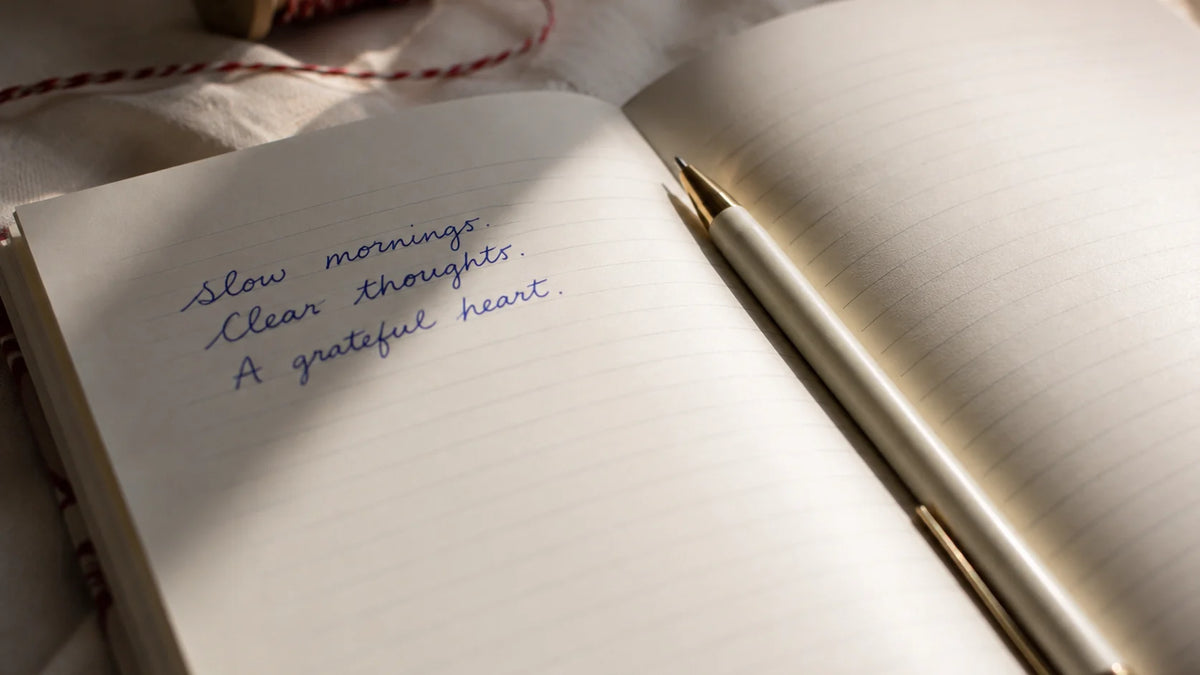 Slow mornings.
Clear thoughts.
A grateful heart.